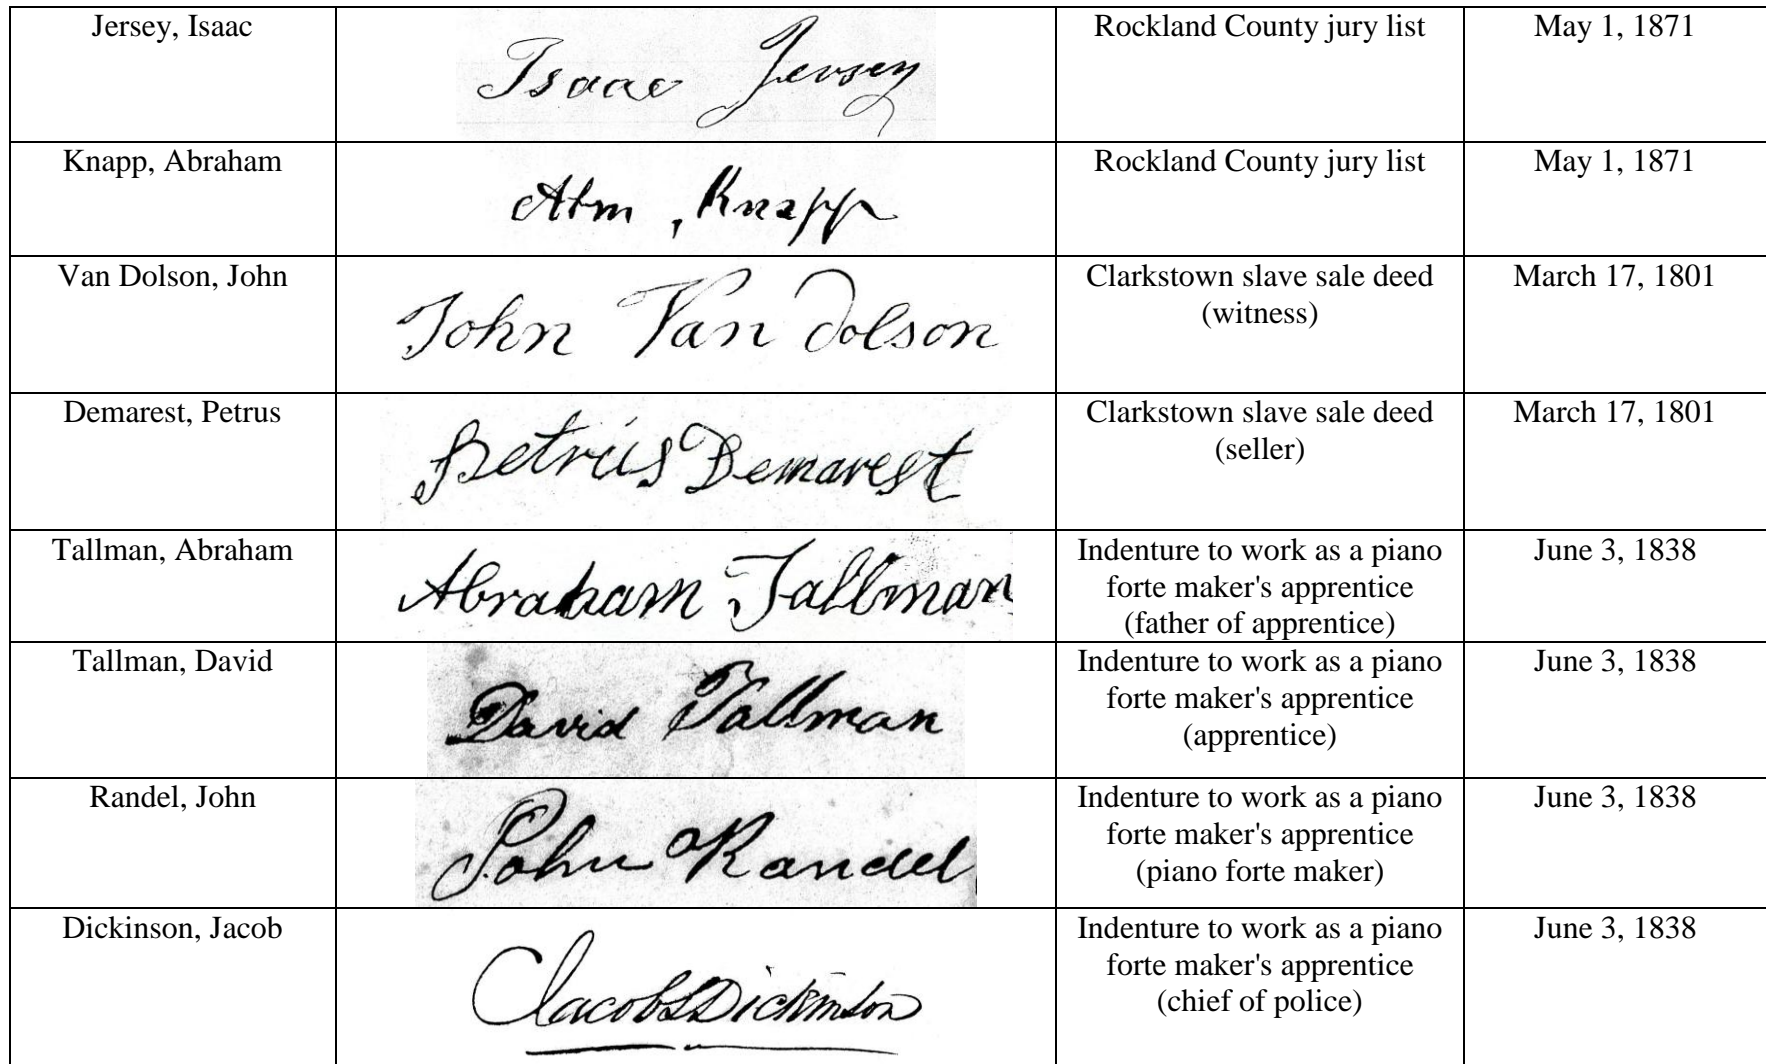 Jersey, Isaac
Isaac Jersey
Rockland County jury list
May 1, 1871
Knapp, Abraham
Abm, Knapp
Rockland County jury list
May 1, 1871
Van Dolson, John
John Van Dolson
Clarkstown slave sale deed
(witness)
March 17, 1801
Demarest, Petrus
Petrus Demarest
Clarkstown slave sale deed
(seller)
March 17, 1801
Tallman, Abraham
Abraham Tallman
Indenture to work as a piano
forte maker's apprentice
(father of apprentice)
June 3, 1838
Tallman, David
David Tallman
Indenture to work as a piano
forte maker's apprentice
(apprentice)
June 3, 1838
Randel, John
John Randel
Indenture to work as a piano
forte maker's apprentice
(piano forte maker)
June 3, 1838
Dickinson, Jacob
Jacob Dickinson
Indenture to work as a piano
forte maker's apprentice
(chief of police)
June 3, 1838